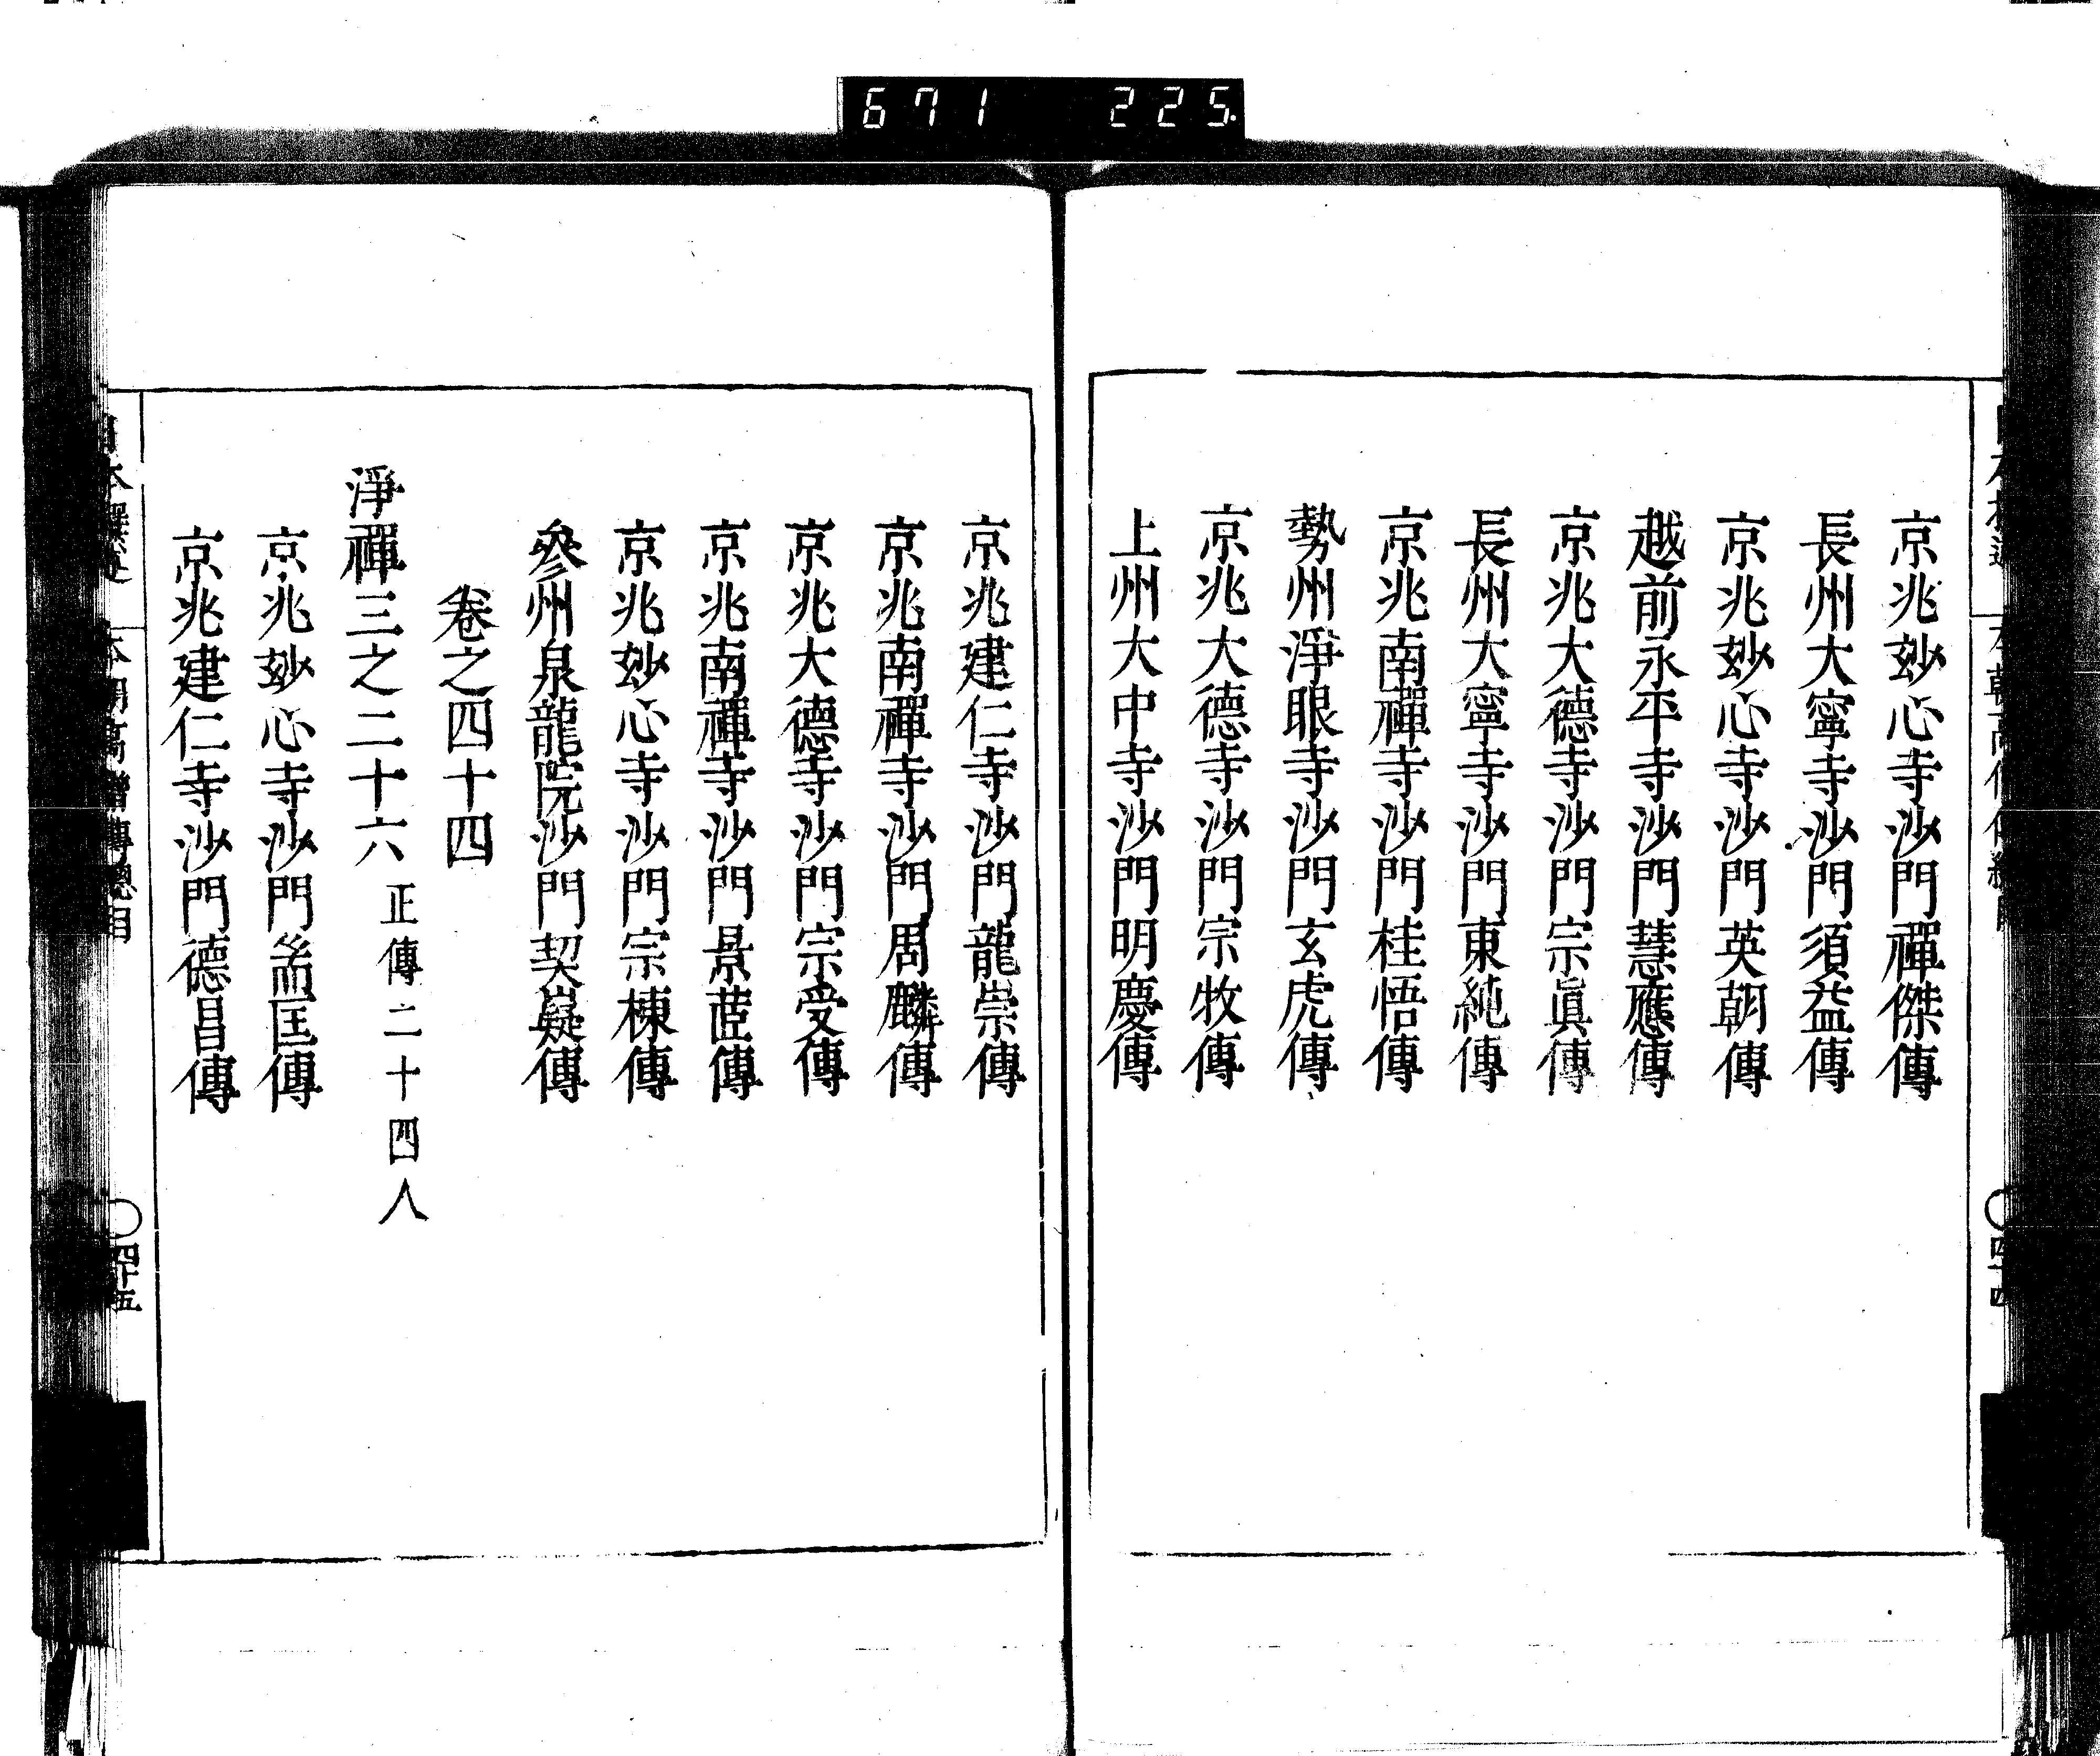 671 225
京兆妙心寺沙門禪傑傳
長州大寧寺沙門須益傳
京兆妙心寺沙門英朝傳
越前永平寺沙門慧應傳
京兆大德寺沙門宗眞傳
長州大寧寺沙門東純傳
京兆南禪寺沙門桂悟傳
勢州淨眼寺沙門玄虎傳
京兆大德寺沙門宗牧傳
上州大中寺沙門明慶傳
京兆建仁寺沙門龍崇傳
京兆南禪寺沙門周麟傳
京兆大德寺沙門宗受傳
京兆南禪寺沙門景茝傳
京兆妙心寺沙門宗棟傳
參州泉龍院沙門契嶷傳
卷之四十四
淨禪三之二十六 正傳二十四人
京兆妙心寺沙門耑匡傳
京兆建仁寺沙門德昌傳
本朝高僧傳總目
四十五